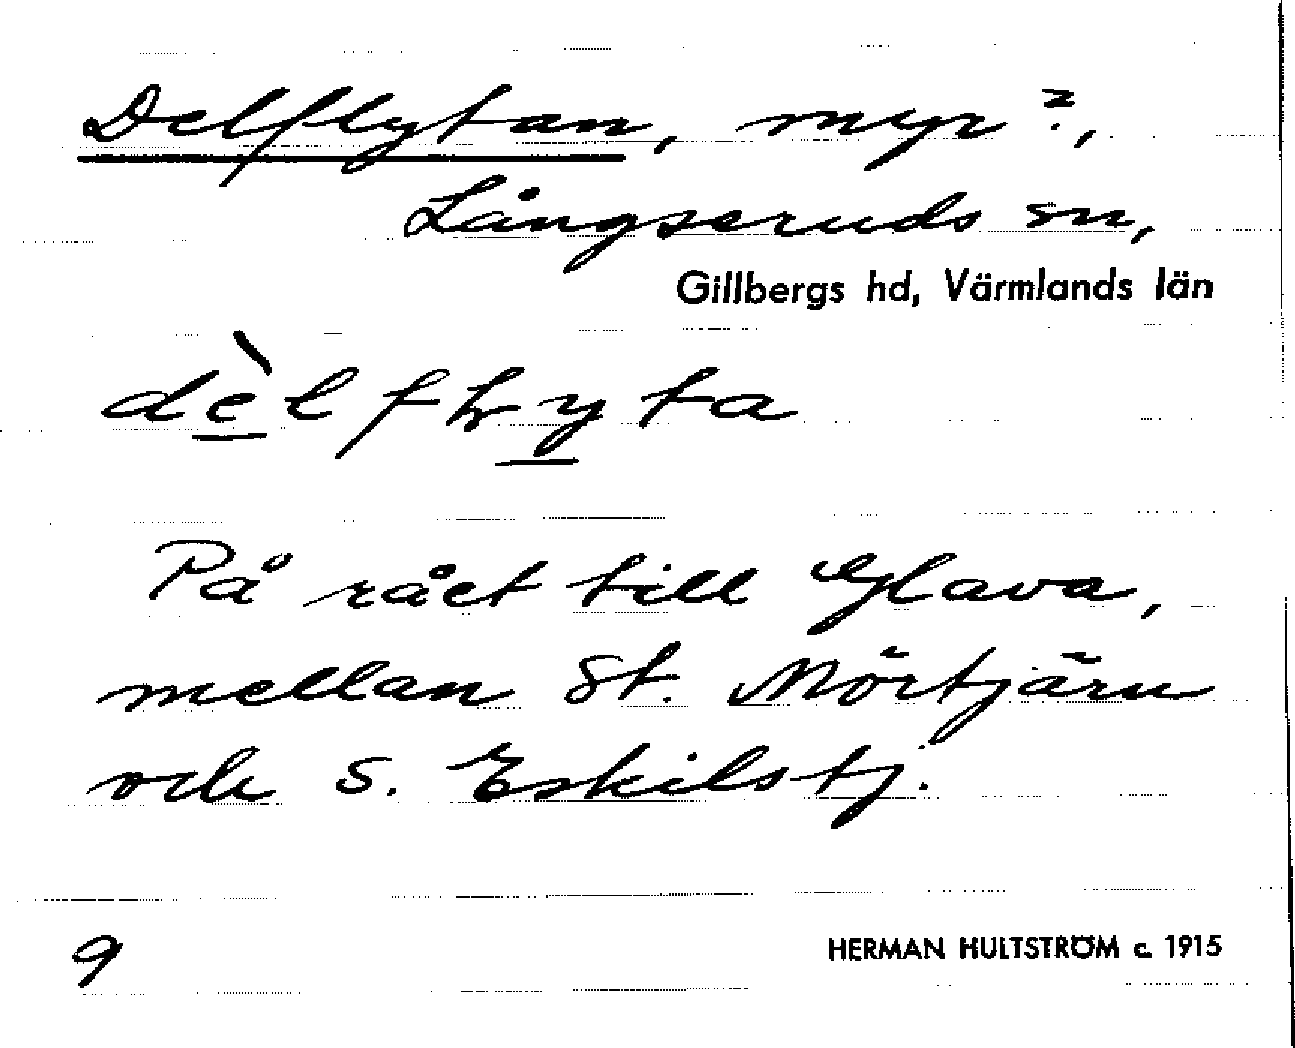 Delflytan, myr?,
Långseruds sn,
Gillbergs hd, Värmlands län
dèlfḷyta
På rået till Glava,
mellan St. Mörtjärn
och S. Eskilstj.
9
HERMAN HULTSTRÖM c. 1915